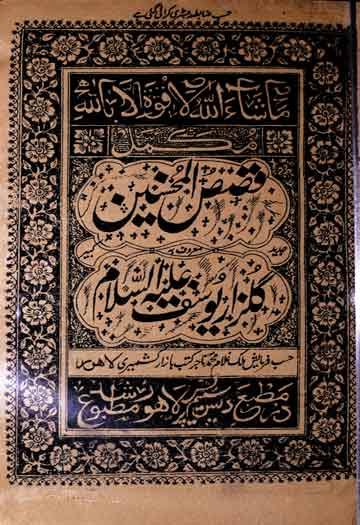 حسب ضابطہ رجسٹری کرائی گئی ہے
ماشاء اللہ لا قوۃ الا باللہ
مکمل
قصص المحسنین
معروف بہ
گلزار یوسف علیہ السلام
حسب فرمایش ملک غلام محمد تاجر کتب بازار کشمیری لاہور
در مطبع لاہور مطبوع